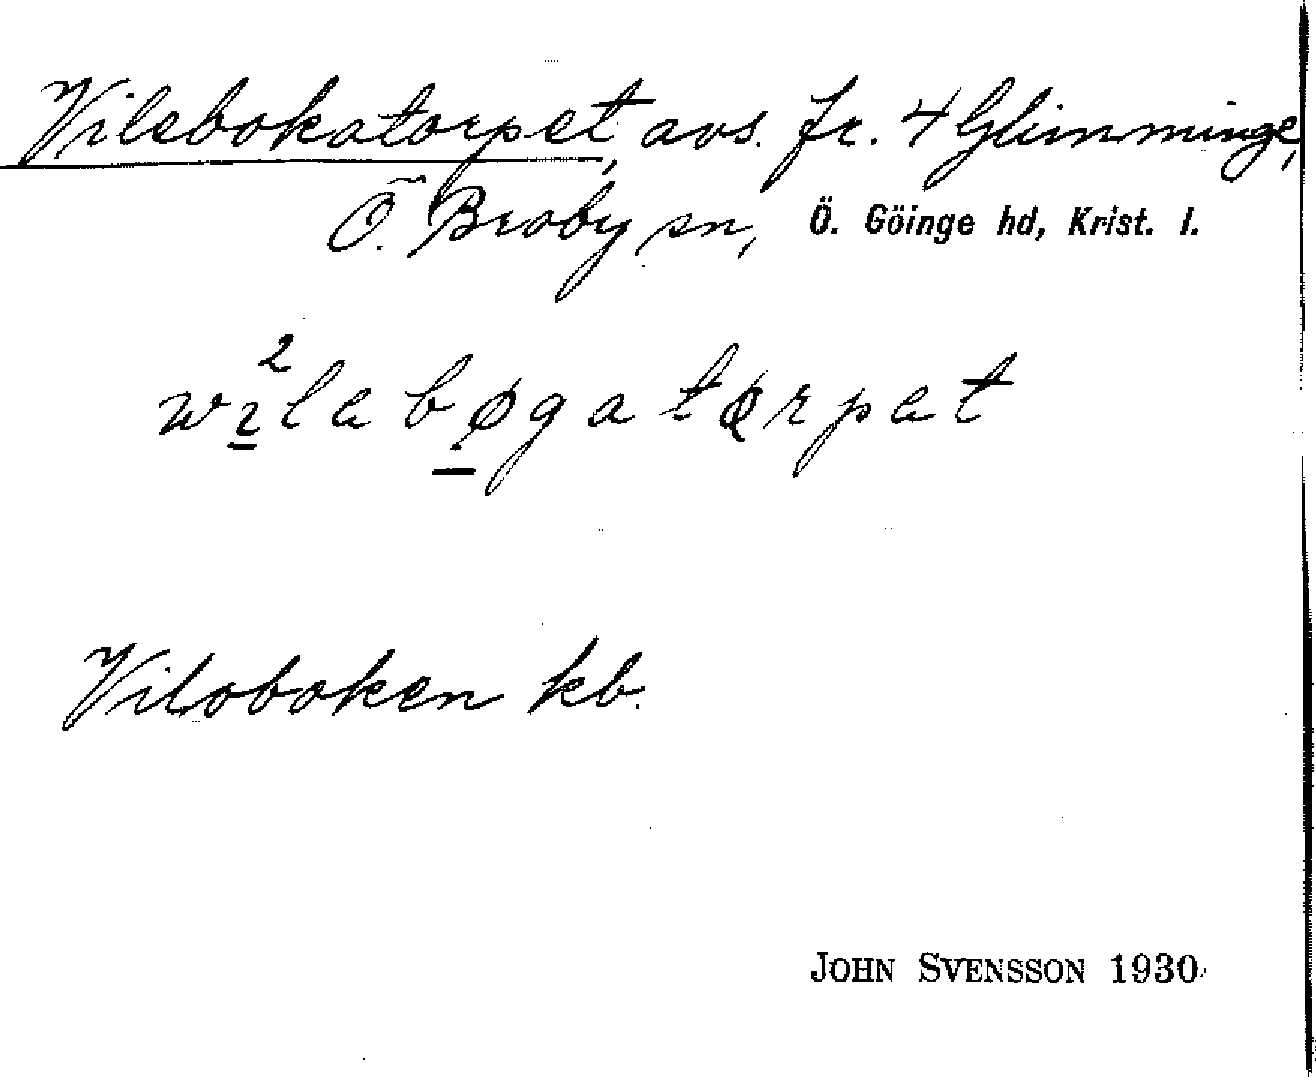 Vilebokatorpet, avs. fr. 4 Glimminge,
Ö. Broby sn, Ö. Göinge hd, Krist. l.
wı²la bøgatørpat
Viloboken kb.
JOHN SVENSSON 1930